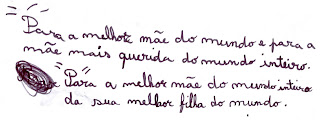 Para a melhor mãe do mundo e para a
mãe mais querida do mundo inteiro.
Para a melhor mãe do mundo inteiro
da sua melhor filha do mundo.